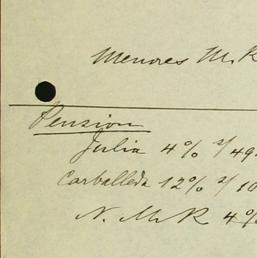 Menores M. R
Pension
Julia 4% s/ 49
Carballeda 12% s/ 10
N. M. R 4%